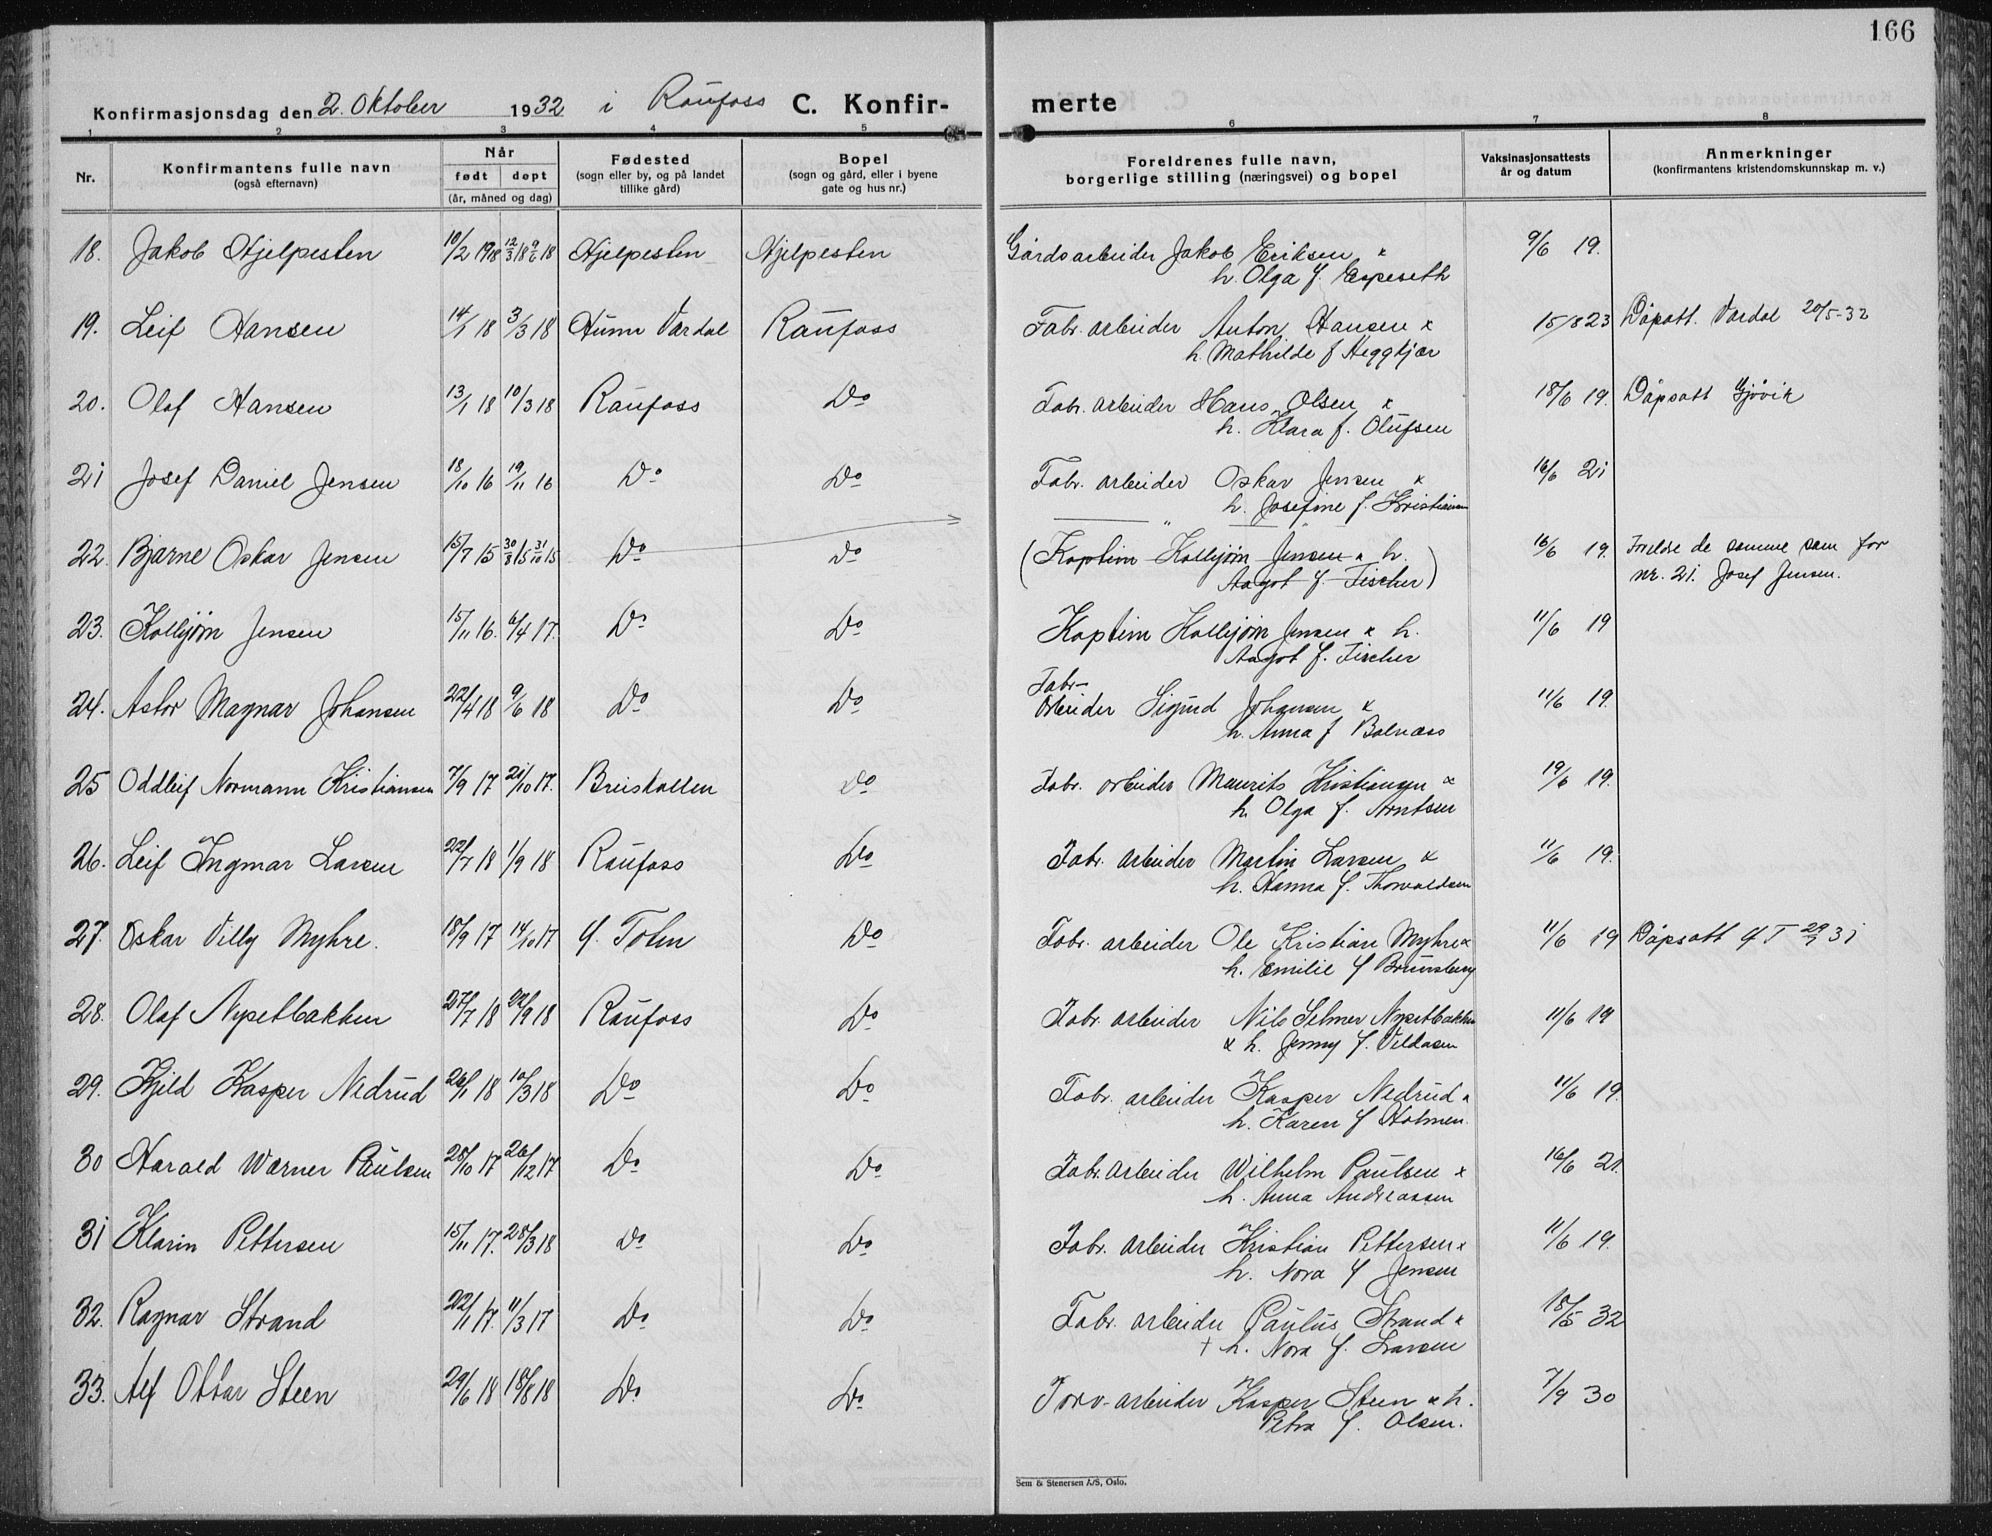 166
Konfirmasjonsdag den 2. Oktober 1932 i Raufoss C. Konfir- merte
1 2 3 4 5 6 7 8
Nr. Konfirmantens fulle navn (også efternavn) Når født døpt (år, måned og dag) Fødested (sogn eller by, og på landet tillike gård) Bopel (sogn og gård, eller i byene gate og hus nr.) Foreldrenes fulle navn, borgerlige stilling (næringsvei) og bopel Vaksinasjonsattests år og datum Anmerkninger (konfirmantens kristendomskunnskap m. v.)
18. Jakob Hjelpesten 10/2 1918 12/3 18 9/6 18 Hjelpesten Hjelpesten Gårdsarbeider Jakob Eriksen & 9/6 19.
h. Olga f. Espeseth
19. Leif Hansen 14/1 18 3/3 18 Hunn Vardal Raufoss Fabr. arbeider Anton Hansen & 15/8 23 Dåpatt. Vardal 20/5-32
h. Mathilde f Heggkjær
20. Olaf Hansen 13/1 18 10/3 18 Raufoss Do Fabr. arbeider Hans Olsen & 18/6 19. Dåpsatt Gjøvik
h. Klara f. Olufsen
21 Josef Daniel Jensen 18/10 16 19/11 16 Do Do Fabr. arbeider Oskar Jensen & 16/6 21
h. Josefine f. Kristiansen
22. Bjarne Oskar Jensen 15/7 15 30/8 15 31/10 15 Do Do (Kaptein Kolbjørn Jensen & h. 16/6 19. Foreldre de samme som for
Aagot f. Fischer) nr. 21. Josef Jensen.
23. Kolbjørn Jensen 15/11 16. 6/4 17. Do Do Kaptein Kolbjørn Jensen & h. 11/6 19
Aagot f. Fischer
24. Astor Magnar Johansen 22/4 18 9/6 18 Do Do Fabr- arbeider Sigurd Johansen & 11/6 19.
h. Anna f Balnæss
25 Oddleif Normann Kristiansen 7/9 17 21/10 17. Breiskallen Do Fabr. arbeider Maurits Kristiansen & 19/6 19.
h. Olga f. Arntsen
26. Leif Ingmar Larsen 22/7 18 1/9 18 Raufoss Do Fabr. arbeider Martin Larsen & 11/6 19.
h. Hanna f. Thorvaldsen
27. Oskar Villy Myhre. 18/9 17 14/10 17 Ø. Toten Do Fabr. arbeider Ole Kristian Myhre & 11/6 19 Dåpsatt Ø T 29/7 31
h. Emilie f Brunsberg
28. Olaf Nysetbakken 27/7 18 22/9 18 Raufoss Do Fabr. arbeider Nils Selmer Nysetbakken 11/6 19
& h. Jenny f. Vildåsen
29. Kjeld Kasper Nedrud 26/1 18 10/3 18 Do Do Fabr. arbeider Kasper Nedrud & 11/6 19.
h. Karen f Holmen.
30 Harald Werner Paulsen 28/10 17 26/12 17 Do Do Fabr. arbeider Wilhelm Paulsen & 16/6 21.
h. Anna Andreassen
31 Klarin Pettersen 15/11 17. 28/3 18 Do Do Fabr. arbeider Kristian Pettersen & 11/6 19.
h. Nora f Jensen
32. Ragnar Strand 22/1 17. 11/3 17 Do Do Fabr. arbeider Paulus Strand & 18/5 32
† h. Nora f. Larsen
33. Alf Ottar Steen 29/6 18 18/8 18 Do Do Torv-arbeider Kasper Steen & h. 7/9 30
Petra f. Olsen.
Sem & Stenersen A/S, Oslo.